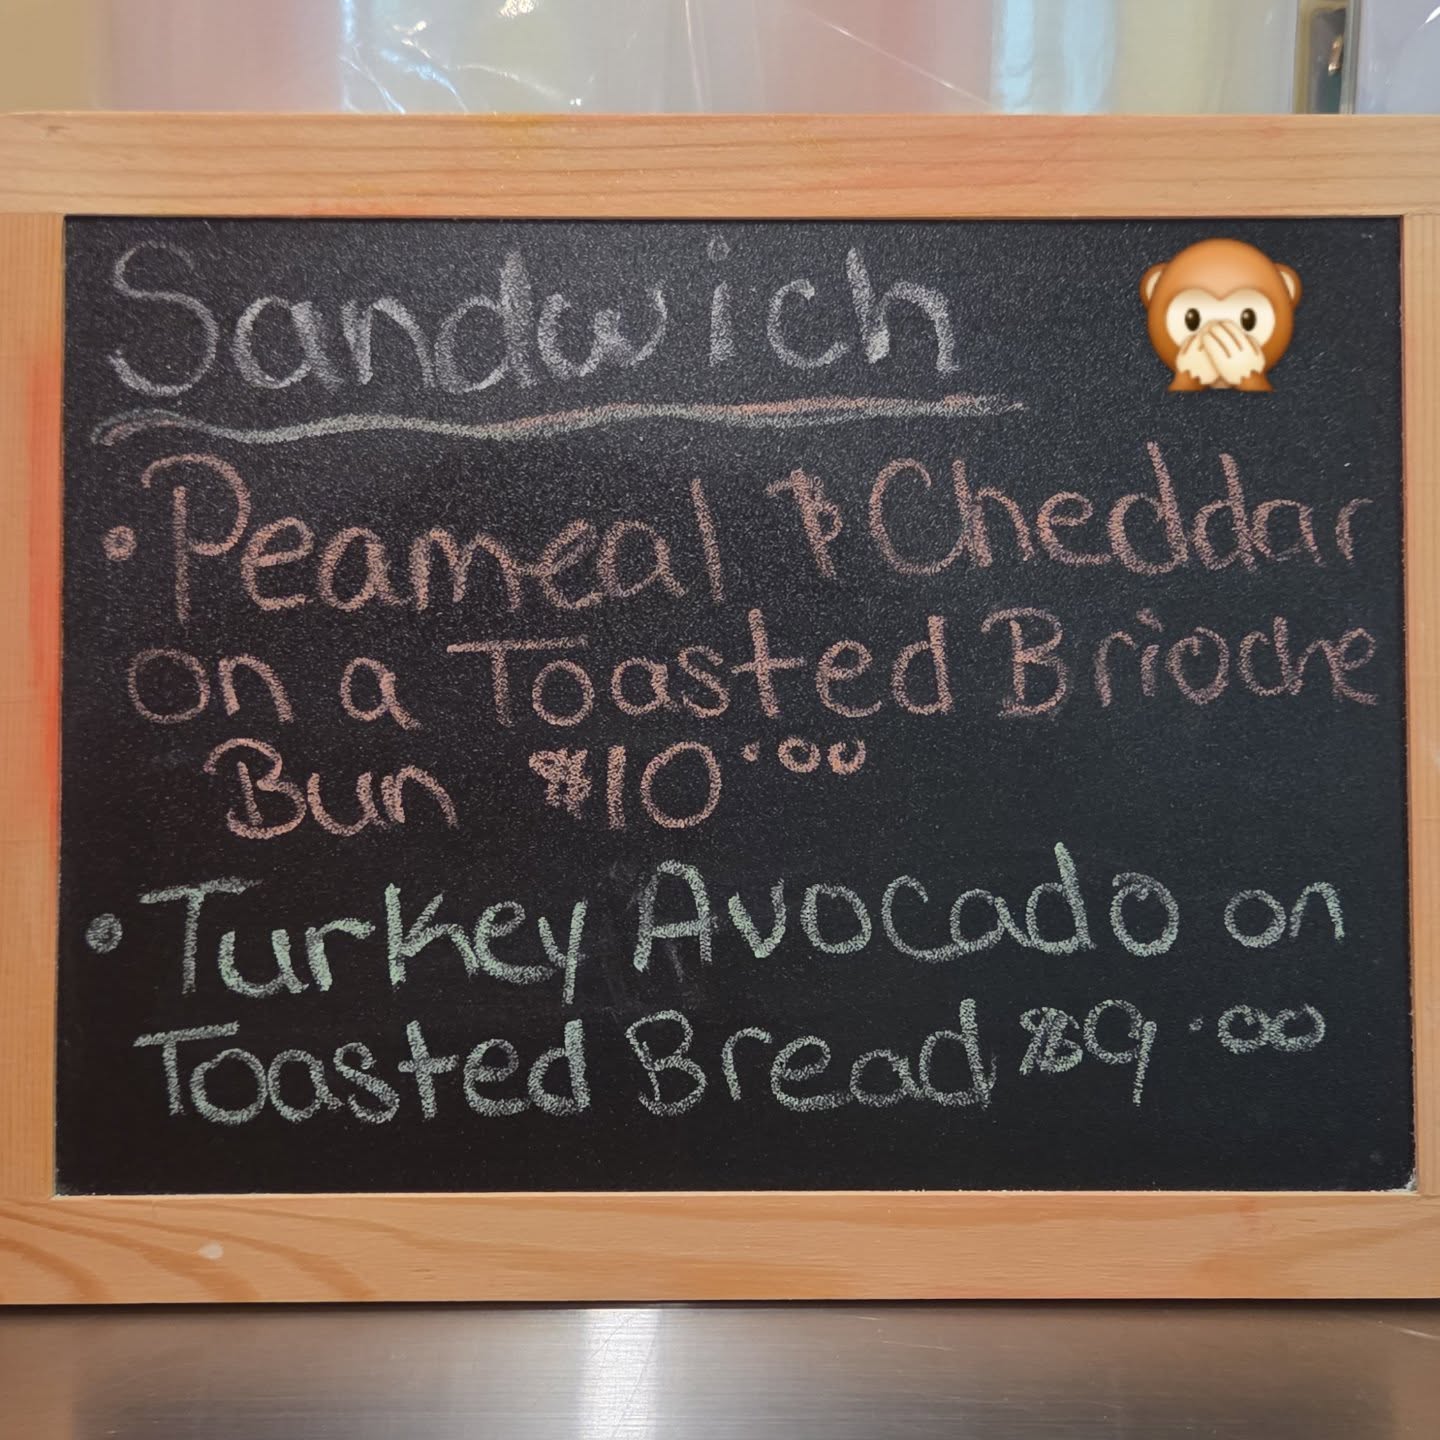 Sandwich
• Peameal & Cheddar
on a Toasted Brioche
Bun $10.00
• Turkey Avocado on
Toasted Bread $9.00